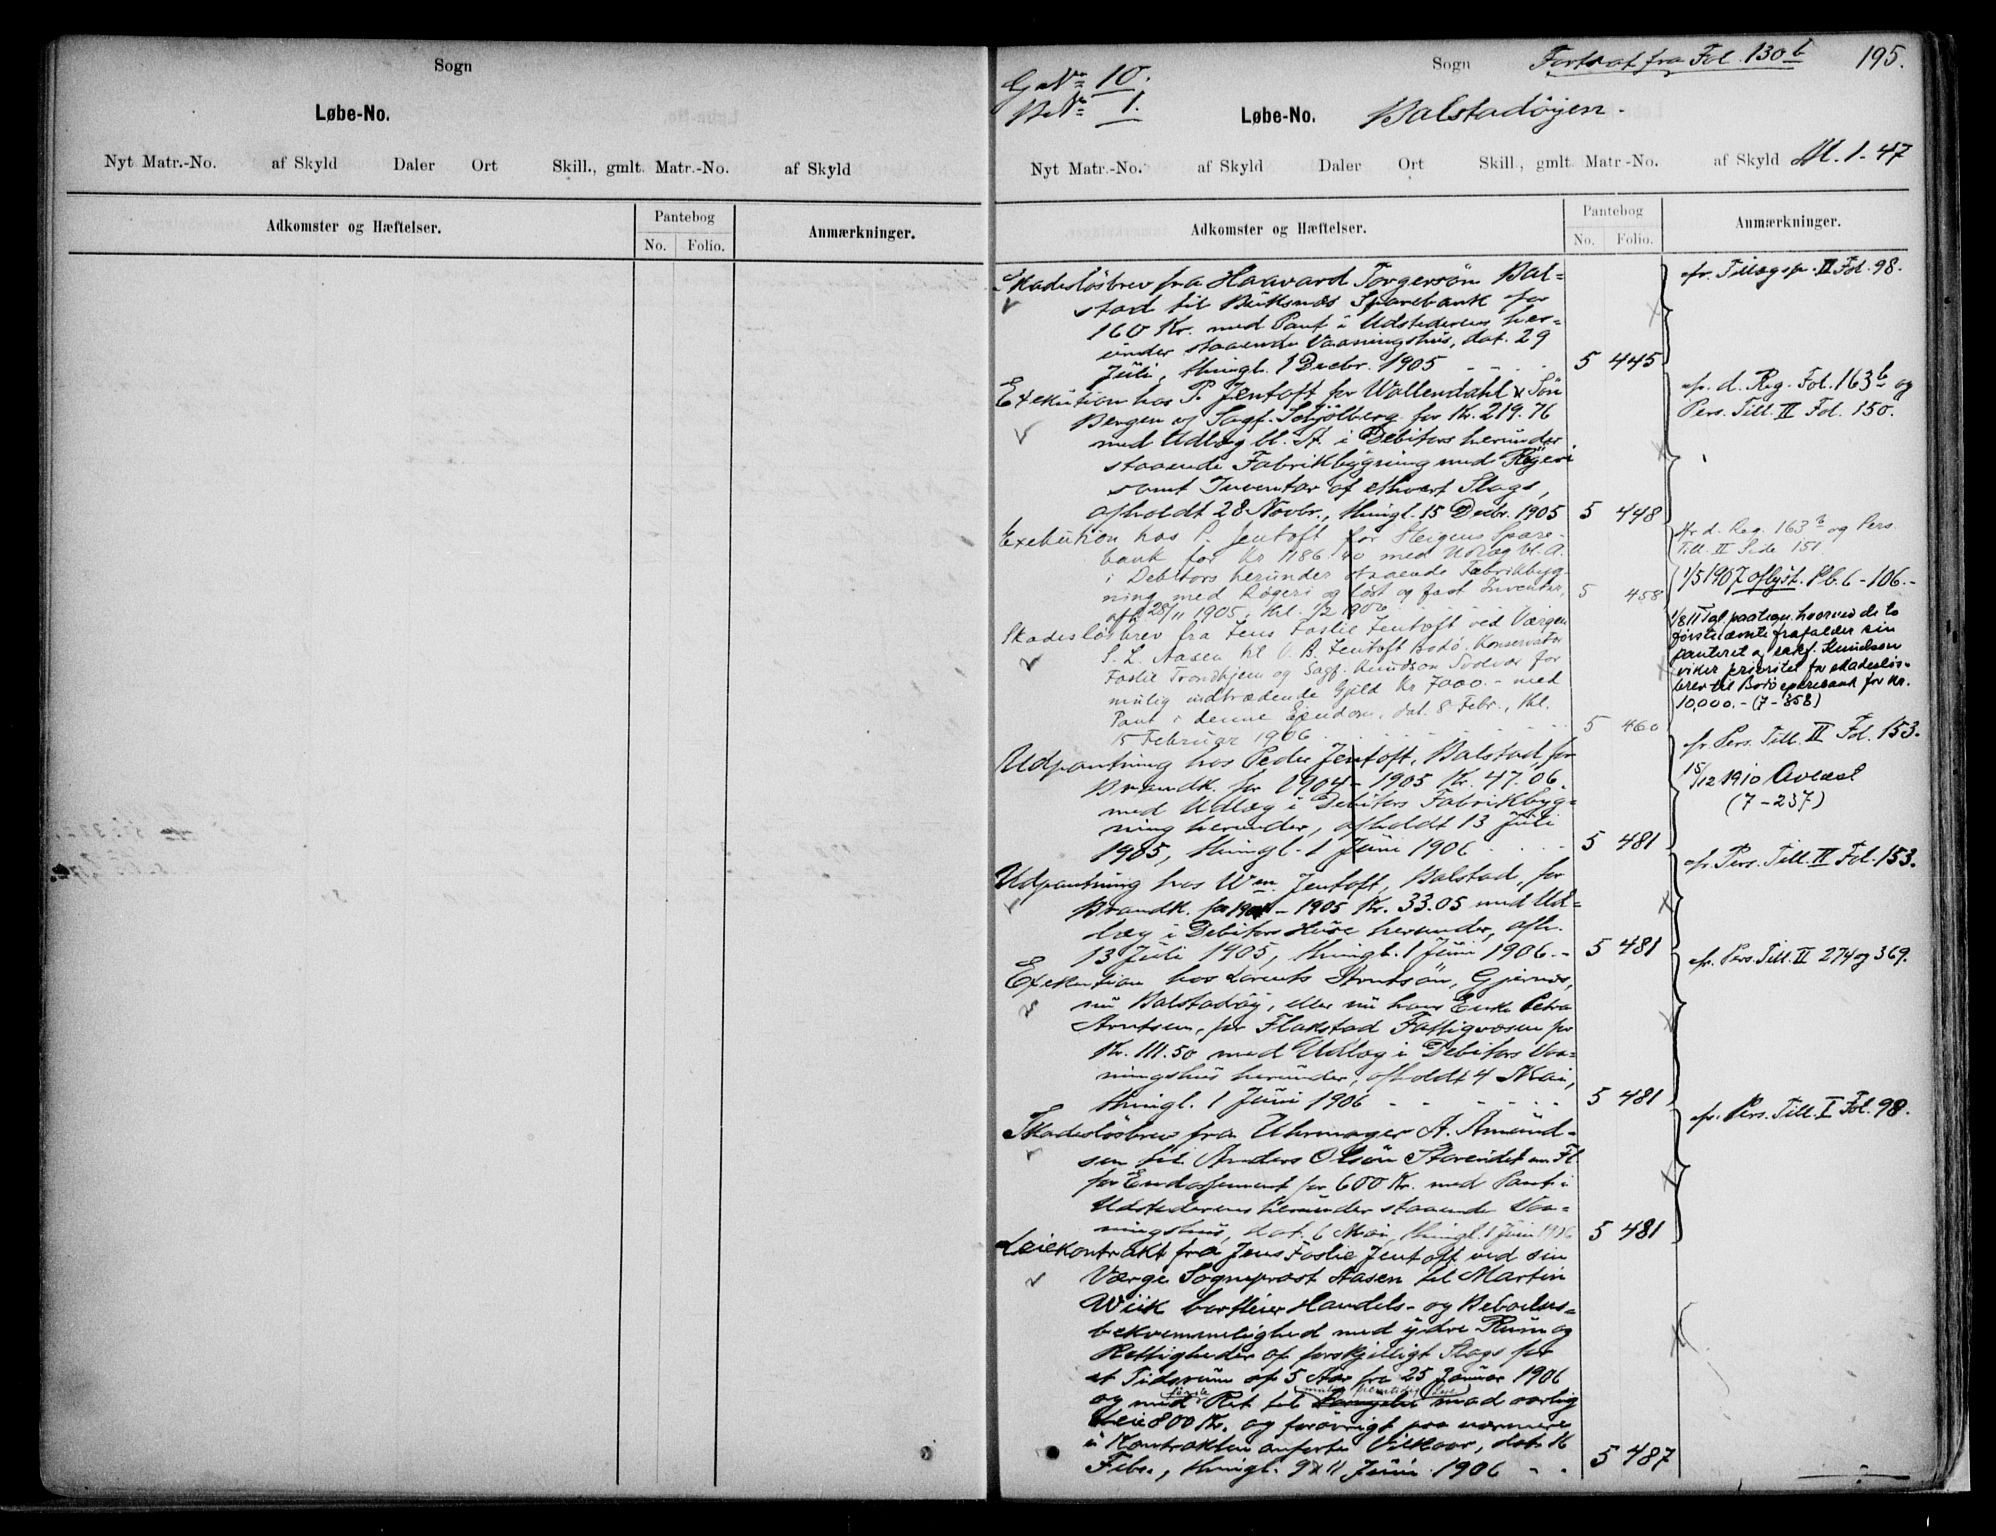 Sogn
Løbe-No.
Nyt Matr.-No. af Skyld Daler Ort Skill., gmlt. Matr.-No. af Skyld
Adkomster og Hæftelser.
Pantebog
No. Folio.
Anmærkninger.
G. Nr. 10.
B. Nr. 1.
Sogn Fortsat fra Fol. 130 b 195.
Løbe-No. Balstadøyen.
Nyt Matr.-No. af Skyld Daler Ort Skill., gmlt. Matr.-No. af Skyld M. 1.47
Adkomster og Hæftelser.
Pantebog
No. Folio.
Anmærkninger.
Skadesløsbrev fra Haavard Torgersøn Bal=
stad til Buksnæs Sparebank for
160 Kr. med Pant i Udstederens her=
under staaende Vaaningshus, dat. 29
Juli, thingl. 1 Decbr. 1905 5 445
cfr. Tillægspr. II Fol. 98.
Exekution hos P. Jentoft for Wallendahl & Søn
Bergen og Sagf. Schjølberg for Kr. 219.76
med Udlæg bl. A. i Debitors herunder
staaende Fabrikbygning med Røgeri
samt Inventar af ethvert Slags,
afholdt 28 Novbr., thingl. 15 Decbr. 1905 5 448
cfr. d. Reg. Fol. 163 b og
Pers. Till. II Fol. 150.
Exekution hos P. Jentoft for Steigens Spare-
bank for Kr 1186.40 med Udlæg bl. A.
i Debitors herunder staaende Fabrikbyg-
ning med Røgeri og løst og fast Inventar,
afh. 28/11 1905, thl. 1/2 1906 5 458
cfr d. Reg. 163 b og Pers.
Till. II Side 151.
1/5 1907 aflyst. Pb. 6 - 106.-
Skadesløsbrev fra Jens Foslie Jentoft ved Værgen
S. L. Aasen til O. B. Jentoft Bodø, Konservator
Foslie Trondhjem og Sagf. Knudson Svolvær for
mulig indtrædende Gjæld Kr 7000.- med
Pant i denne Eiendom, dat. 8 Febr., thl.
15 Februar 1906 5 460
1/8 11 Tgl. paategn. hvorved de to
førstnævnte frafalder sin
panteret og sakf. Knudson
viker prioritet for skadesløs-
brev til Bodø sparebank for kr.
10,000.- (7-358)
Udpantning hos Peder Jentoft, Balstad, for
Brandk. for 1904 - 1905 Kr. 47.06.
med Udlæg i Debitors Fabrikbyg=
ning herunder, afholdt 13 Juli
1905, thingl. 1 Juni 1906 5 481
cfr. Pers. Till. II Fol. 153.
15/12 1910 Avlæst
(7-237)
Udpantning hos Wm. Jentoft, Balstad, for
Brandk. for 1904 - 1905 Kr. 33.05 med Ud=
læg i Debitors Huse herunder, afh.
13 Juli 1905, thingl. 1 Juni 1906.- 5 481
cfr. Pers. Till. II Fol. 153.
Exekution hos Lorents Arntsøn, Gjernes,
nu Balstadøy, eller nu hans Enke Petra
Arntsen, for Flakstad Fattigvæsen for
Kr. 111.50 med Udlæg i Debitors Vaa=
ningshus herunder, afholdt 4 Mai,
thingl. 1 Juni 1906 5 481
cfr. Pers. Till. II 274 og 369.
Skadesløsbrev fra Uhrmager A. Amund=
sen til Anders Olsøn Storeidet m. Fl.
for Endossement for 600 Kr. med Pant i
Udstederens herunder staaende Vaa=
ningshus, dat. 6 Mai, thingl. 1 Juni 1906 5 481
cfr. Pers. Till. I Fol. 98.
Leiekontrakt fra Jens Foslie Jentoft ved sin
Værge Sogneprest Aasen til Martin
Wiik bortleier Handels- og Beboelses=
bekvemmelighed med ydre Rum og
Rettigheder af forskjelligt Slags for
et Tidsrum af 5 Aar fra 25 Januar 1906
og med første Ret til mulig fremtidig Leie mod aarlig
Leie 800 Kr. og forøvrigt paa nærmere
i Kontrakten anførte Vilkaar, dat. 16
Febr., thingl. 9 & 11 Juni 1906 5 487